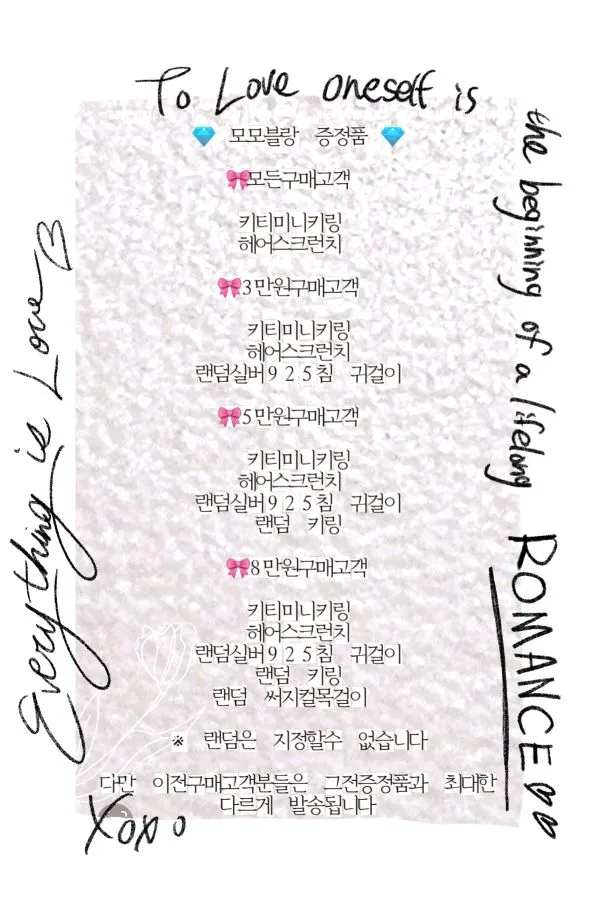 To Love oneself is
the beginning of a lifelong
ROMANCE
Everything is Love
💎 모모블랑 증정품 💎
🎀모든구매고객
키티미니키링
헤어스크런치
🎀3만원구매고객
키티미니키링
헤어스크런치
랜덤실버925침 귀걸이
🎀5만원구매고객
키티미니키링
헤어스크런치
랜덤실버925침 귀걸이
랜덤 키링
🎀8만원구매고객
키티미니키링
헤어스크런치
랜덤실버925침 귀걸이
랜덤 키링
랜덤 써지컬목걸이
※ 랜덤은 지정할수 없습니다
다만 이전구매고객분들은 그전증정품과 최대한
다르게 발송됩니다
XOXO